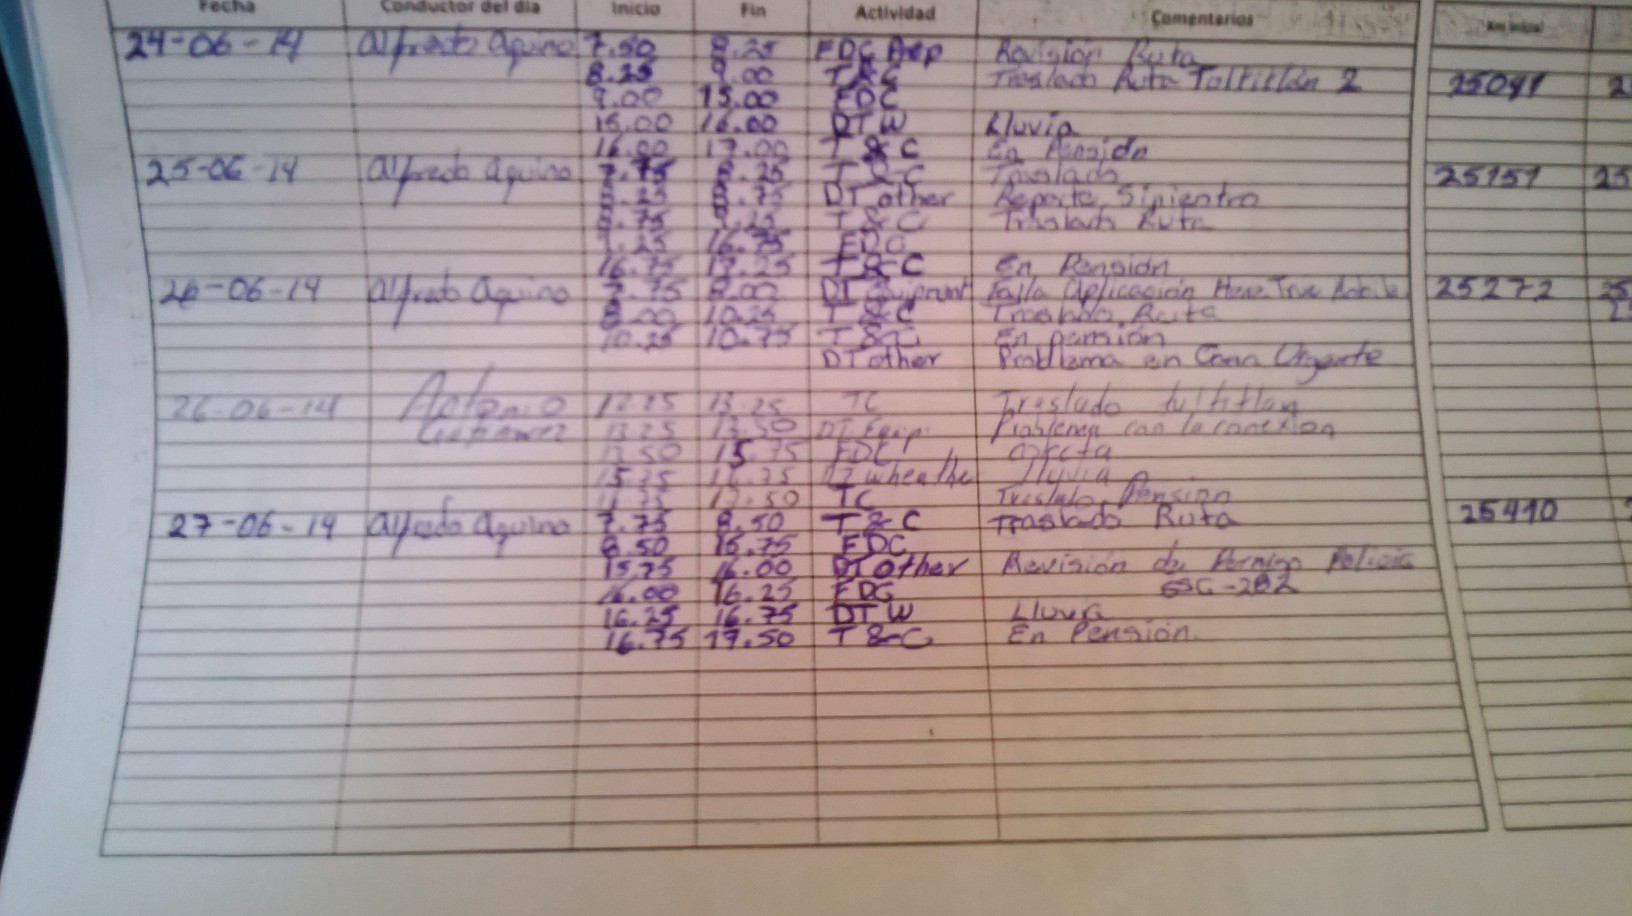 Fecha Conductor del día Inicio Fin Actividad Comentarios Km inicial
24-06-14 Alfredo Aquino 7.50 8.25 FDC Prep Revisión Ruta
8.25 9.00 T & C Traslado Ruta Tultitlán 2 25041
9.00 15.00 FDC
15.00 16.00 DT W Lluvia
16.00 17.00 T & C En Pensión
25-06-14 Alfredo Aquino 7.75 8.25 T & C Traslado 25151
8.25 8.75 DT other Reporte Siniestro
8.75 9.25 T & C Traslado Ruta
9.25 16.75 FDC
16.75 17.25 T & C En Pensión
26-06-14 Alfredo Aquino 7.75 8.00 DT Falla Aplicación Here True 25272
8.00 10.25 T & C Traslado Ruta
10.25 10.75 T & C En pensión
DT other Problema en Casa Urgente
26-06-14 Antonio 12.25 13.25 TC Traslado tultitlan
Gutierrez 13.25 13.50 DT Equip. Problema con la conexion
13.50 15.75 FDC
15.75 DT wheathe lluvia
17.50 TC Traslado Pension
27-06-14 Alfredo Aquino 7.75 8.50 T & C Traslado Ruta 25410
8.50 15.75 FDC
15.75 16.00 DT other Revisión de Permiso Policia
16.00 16.25 FDC
16.25 16.75 DT W Lluvia
16.75 17.50 T & C En Pensión.